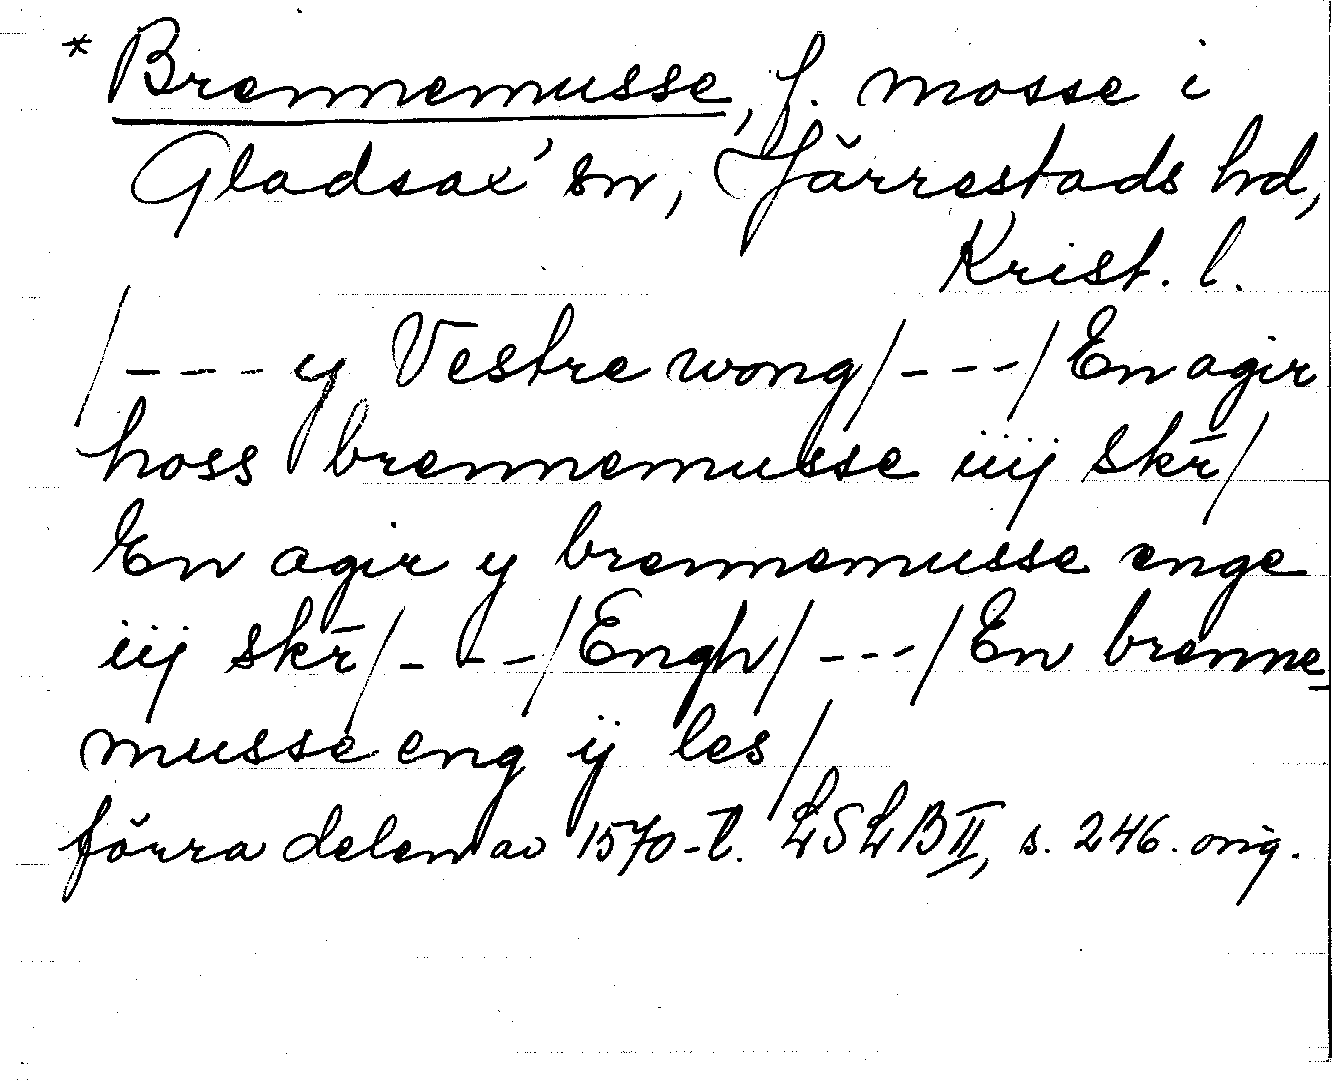 * Brennemusse, f. mosse i
Gladsax' sn, Järrestads hd,
Krist. l.
/--- y Vestre wong/---/En agir
hoss brennemusse iiij skr̄/
En agir y brennemusse enge
iij skr̄/---/Engh/---/En brenne-
musse eng ij les/
förra delen av 1570-t. LSLB II, s. 246. orig.